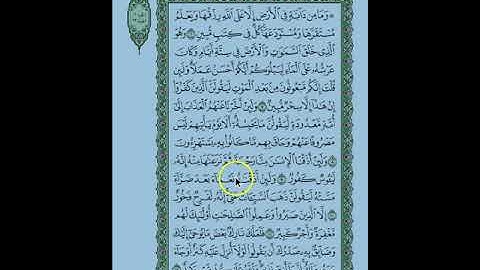 ۞ وَمَا مِن دَآبَّةٍ فِي ٱلْأَرْضِ إِلَّا عَلَى ٱللَّهِ رِزْقُهَا وَيَعْلَمُ
مُسْتَقَرَّهَا وَمُسْتَوْدَعَهَا كُلٌّ فِي كِتَٰبٍ مُّبِينٍ ۝ وَهُوَ
ٱلَّذِي خَلَقَ ٱلسَّمَٰوَٰتِ وَٱلْأَرْضَ فِي سِتَّةِ أَيَّامٍ وَكَانَ
عَرْشُهُۥ عَلَى ٱلْمَآءِ لِيَبْلُوَكُمْ أَيُّكُمْ أَحْسَنُ عَمَلًا وَلَئِن
قُلْتَ إِنَّكُم مَّبْعُوثُونَ مِنۢ بَعْدِ ٱلْمَوْتِ لَيَقُولَنَّ ٱلَّذِينَ كَفَرُوٓا۟
إِنْ هَٰذَآ إِلَّا سِحْرٌ مُّبِينٌ ۝ وَلَئِنْ أَخَّرْنَا عَنْهُمُ ٱلْعَذَابَ إِلَىٰٓ
أُمَّةٍ مَّعْدُودَةٍ لَّيَقُولُنَّ مَا يَحْبِسُهُۥٓ أَلَا يَوْمَ يَأْتِيهِمْ لَيْسَ
مَصْرُوفًا عَنْهُمْ وَحَاقَ بِهِم مَّا كَانُوا۟ بِهِۦ يَسْتَهْزِءُونَ
۝ وَلَئِنْ أَذَقْنَا ٱلْإِنسَٰنَ مِنَّا رَحْمَةً ثُمَّ نَزَعْنَٰهَا مِنْهُ إِنَّهُۥ
لَيَـُٔوسٌ كَفُورٌ ۝ وَلَئِنْ أَذَقْنَٰهُ نَعْمَآءَ بَعْدَ ضَرَّآءَ
مَسَّتْهُ لَيَقُولَنَّ ذَهَبَ ٱلسَّيِّـَٔاتُ عَنِّيٓ إِنَّهُۥ لَفَرِحٌ فَخُورٌ
۝ إِلَّا ٱلَّذِينَ صَبَرُوا۟ وَعَمِلُوا۟ ٱلصَّٰلِحَٰتِ أُو۟لَٰٓئِكَ لَهُم
مَّغْفِرَةٌ وَأَجْرٌ كَبِيرٌ ۝ فَلَعَلَّكَ تَارِكٌۢ بَعْضَ مَا يُوحَىٰٓ إِلَيْكَ
وَضَآئِقٌۢ بِهِۦ صَدْرُكَ أَن يَقُولُوا۟ لَوْلَآ أُنزِلَ عَلَيْهِ كَنزٌ أَوْ جَآءَ